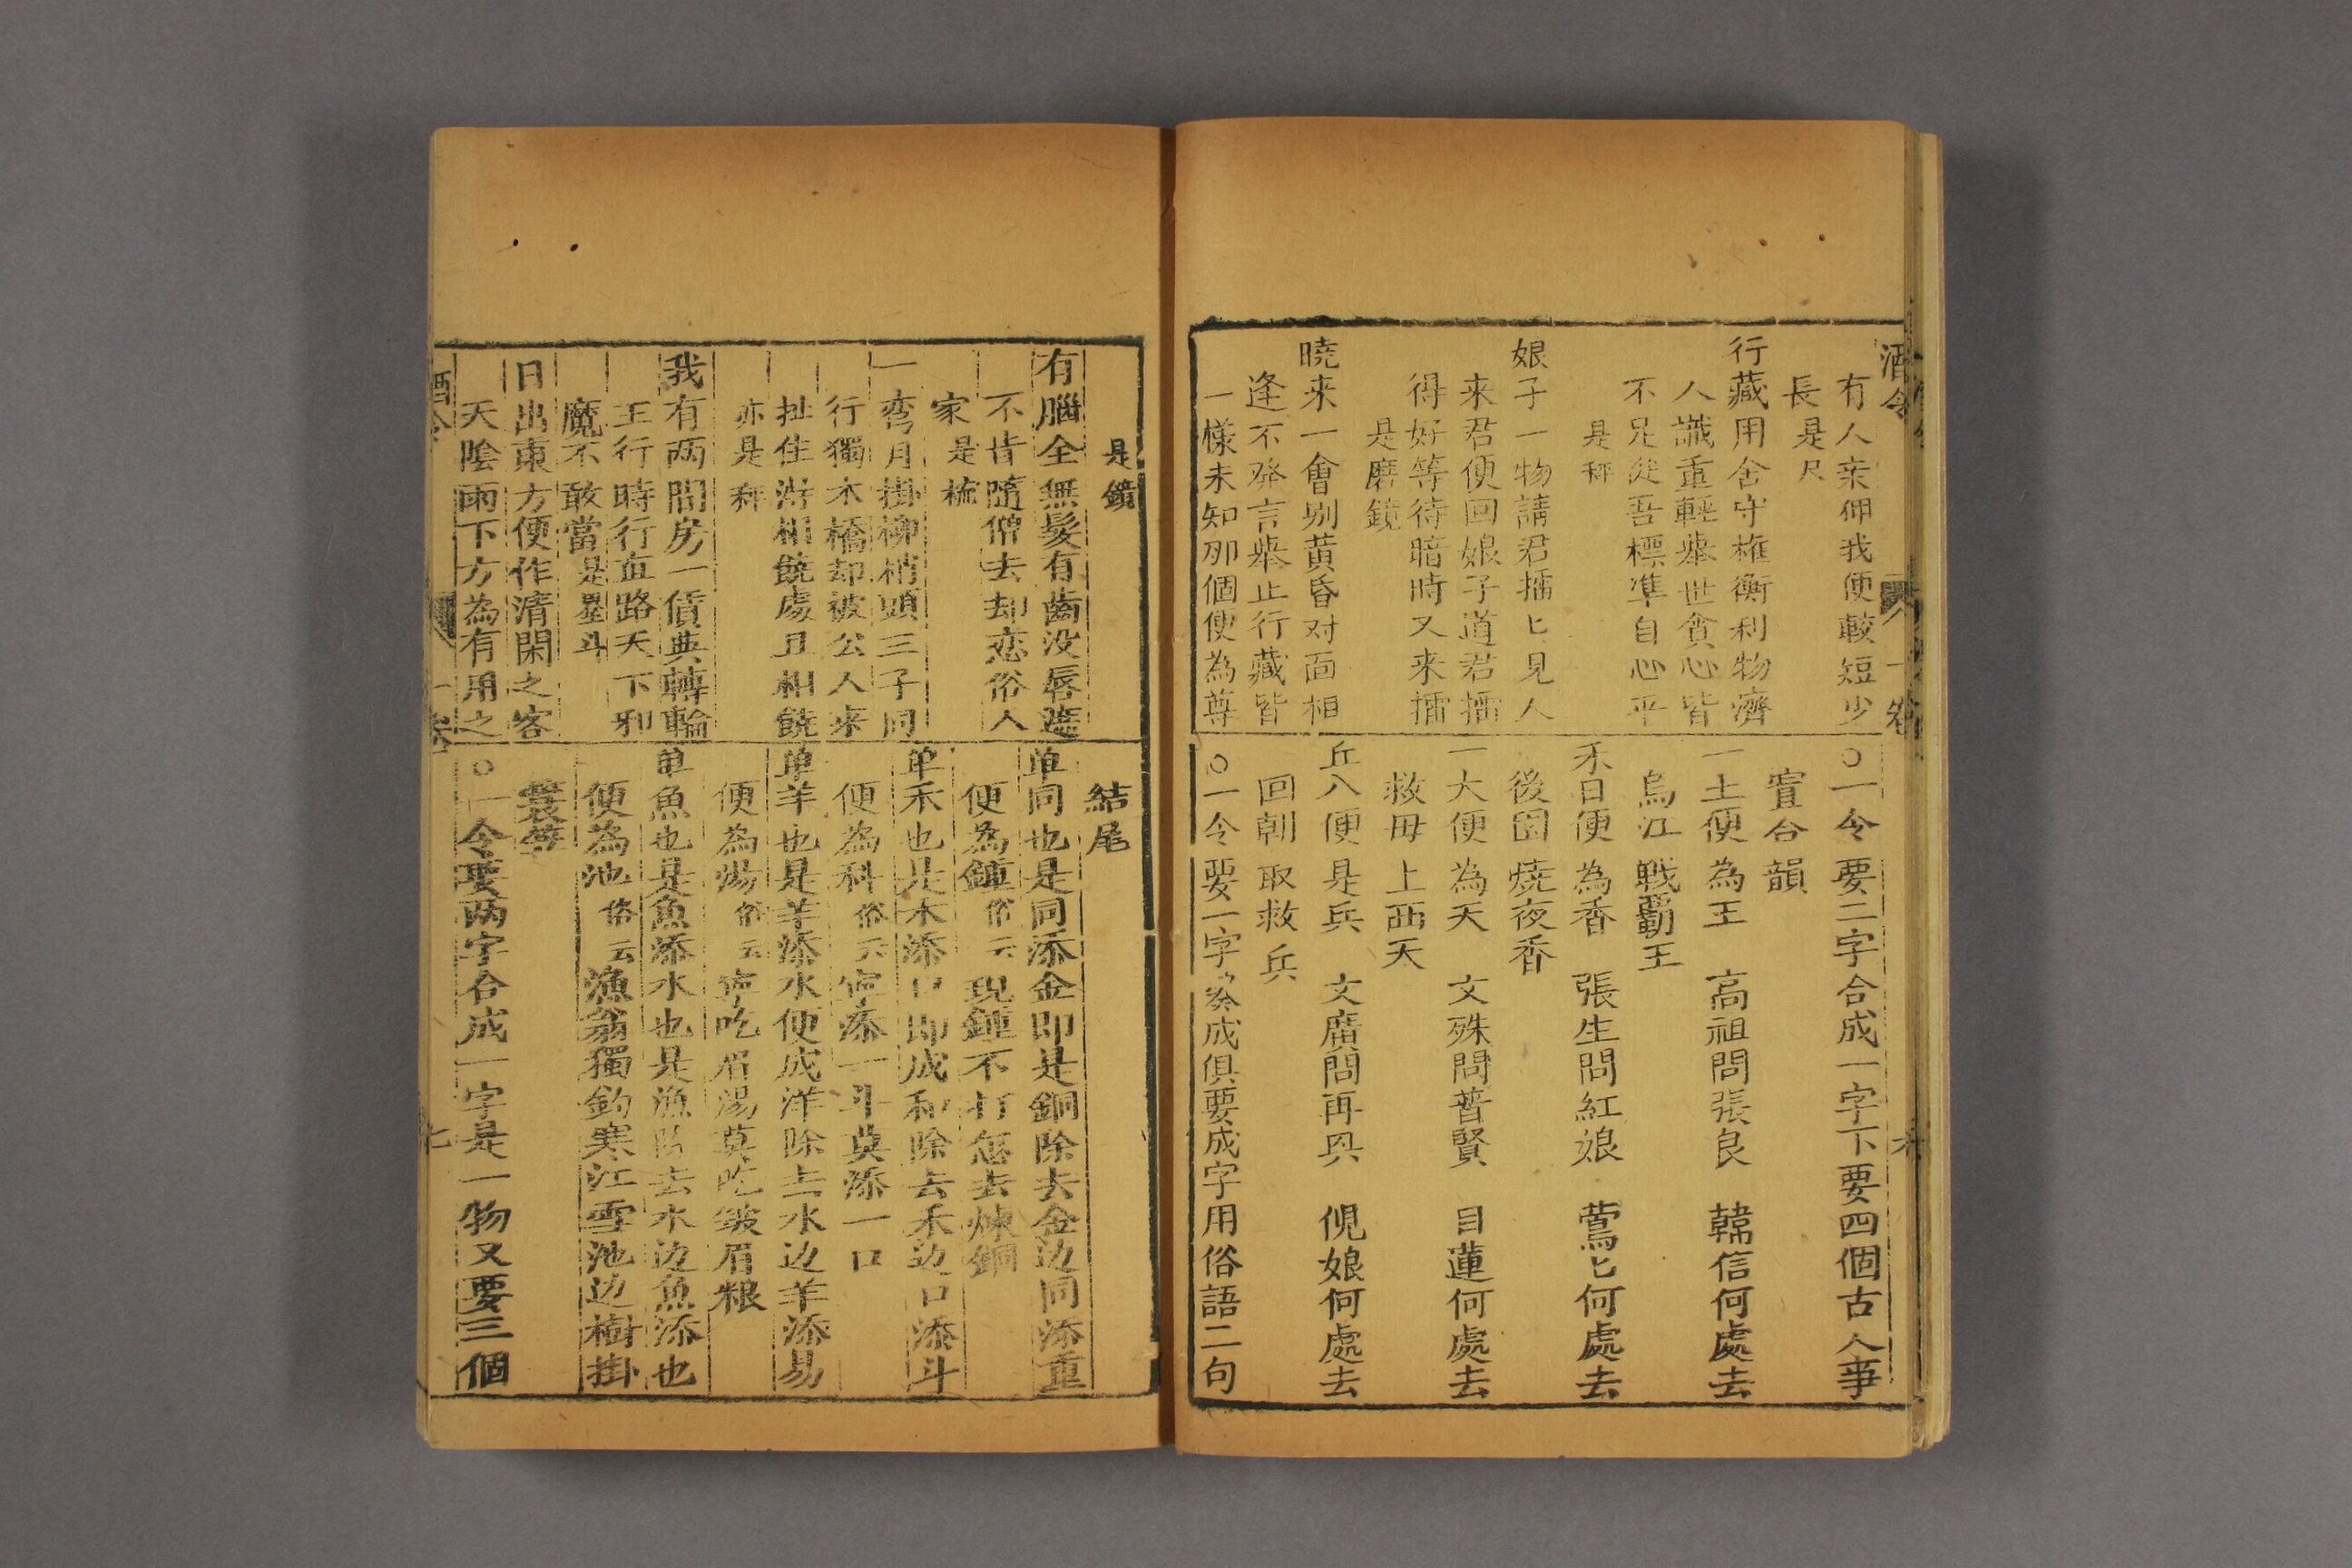 酒令
有人來佣我便較短少
長是尺
行藏用舍守權衡利物濟
人識重輕舉世貪心皆
不足從吾標準自心平
是秤
娘子一物請君擂匕見人
来君便回娘子道君擂
得好等待暗時又来擂
是磨鏡
曉来一會别黄昏对面相
逢不發言舉止行藏皆
一樣未知那個便為尊
○一令要二字合成一字下要四個古人事
實合韻
一土便為王 高祖問張良 韓信何處去
烏江戰覇王
禾日便為香 張生問紅娘 鶯匕何處去
後園燒夜香
一大便為天 文殊問普賢 目蓮何處去
救母上西天
丘八便是兵 文廣問再興 俔娘何處去
回朝取救兵
○一令要一字湊成俱要成字用俗語二句
是鏡
有腦全無髮有齒没唇遮
不肯隨僧去却恋俗人
家是梳
一弯月掛柳梢頭三子同
行獨木橋却被公人来
扯住湏相饒處且相饒
亦是秤
我有两間房一債典轉輪
王行時行直路天下邪
魔不敢當是墨斗
日出東方便作清閑之客
天陰雨下方為有用之
結尾
单同也是同添金即是銅除去金边同添重
便為鍾俗云現鍾不打怎去煉銅
单禾也是禾添口即成和除去禾边口添斗
便為科俗云寧添一斗莫添一口
单羊也是羊添水便成洋除去水边羊添易
便為湯俗云寧吃眉湯莫吃皺眉粮
单魚也是魚添水也是漁除去水边魚添也
便為池俗云漁翁獨釣寒江雪池边樹掛
蓑笠
○一令要两字合成一字是一物又要三個
酒令